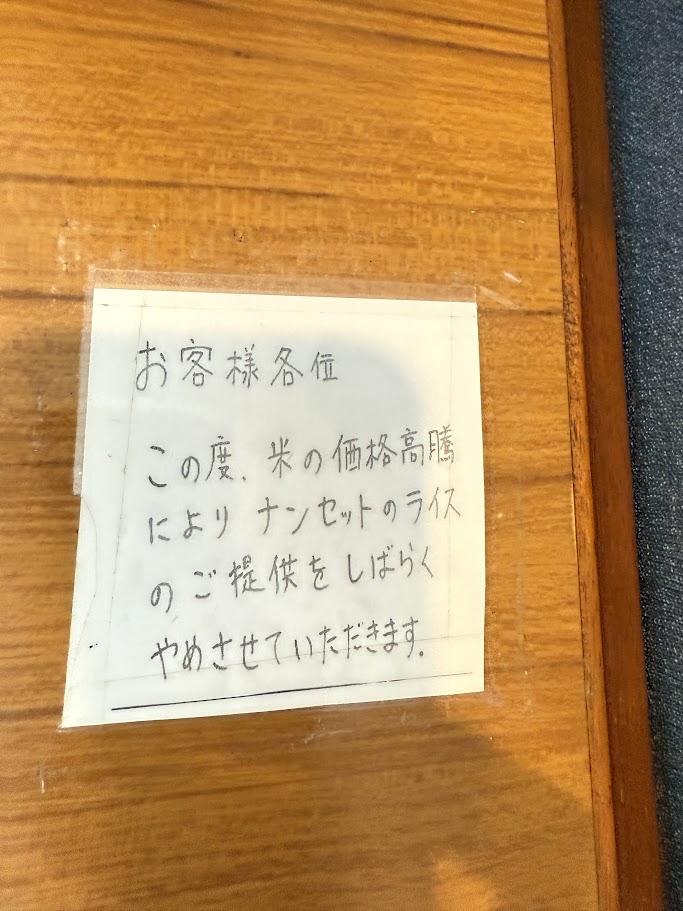 お客様各位
この度、米の価格高騰
により ナンセットのライス
のご提供をしばらく
やめさせていただきます。